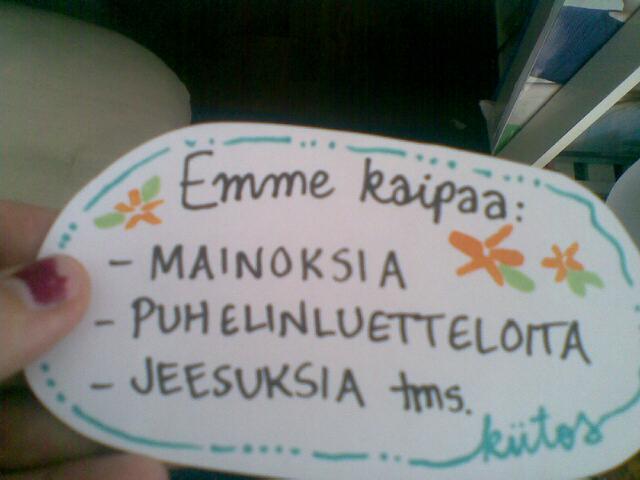 Emme kaipaa:
- MAINOKSIA
- PUHELINLUETTELOITA
- JEESUKSIA tms.
kiitos